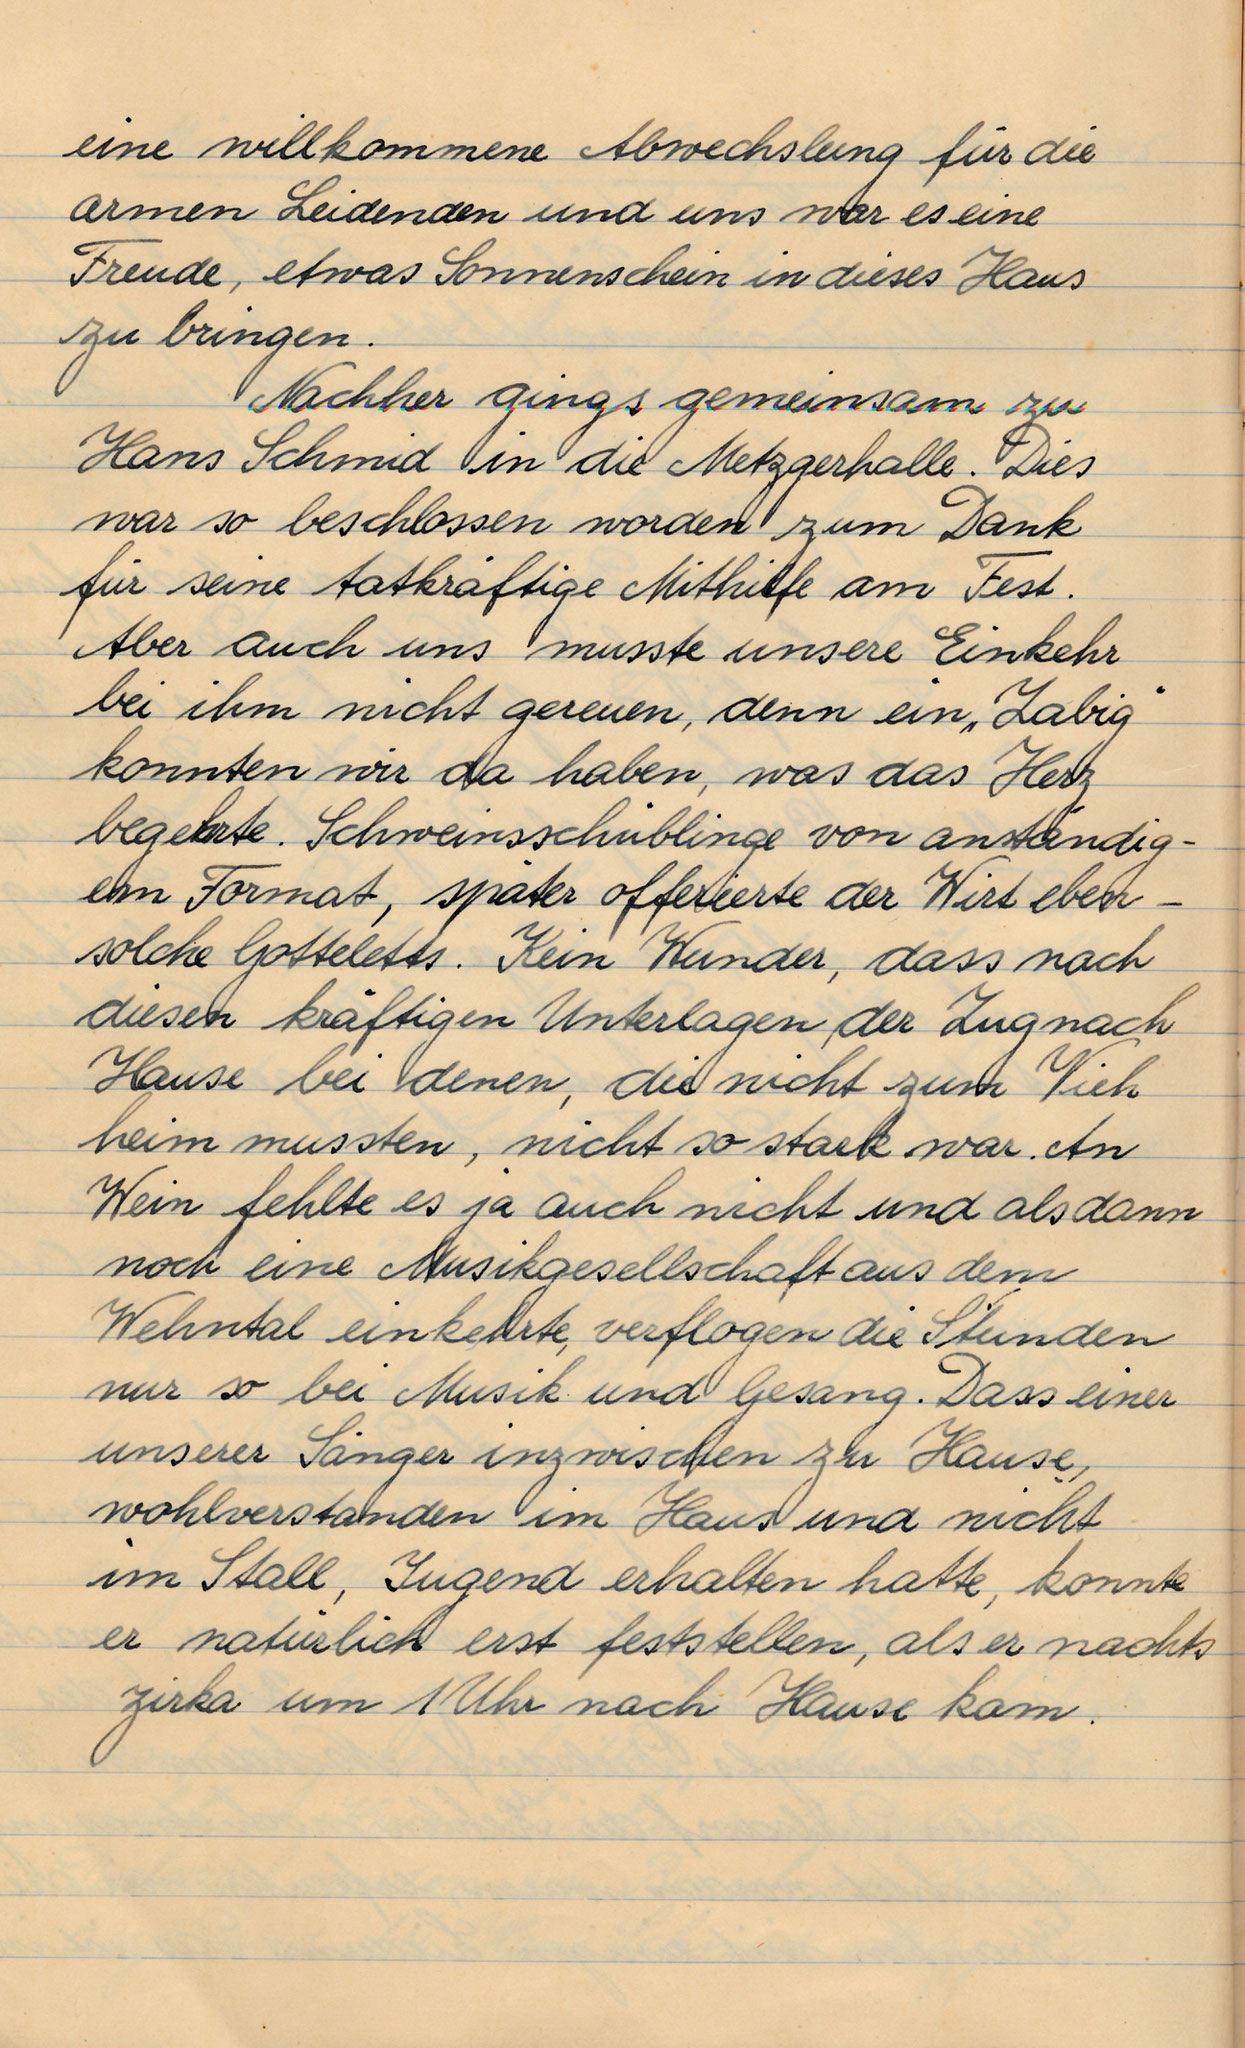 eine willkommene Abwechslung für die
armen Leidenden und uns war es eine
Freude, etwas Sonnenschein in dieses Haus
zu bringen.
Nachher gings gemeinsam zu
Hans Schmid in die Metzgerhalle. Dies
war so beschlossen worden zum Dank
für seine tatkräftige Mithilfe am Fest.
Aber auch uns musste unsere Einkehr
bei ihm nicht gereuen, denn ein „Zabig"
konnten wir da haben, was das Herz
begehrte. Schweinsschüblinge von anständig-
em Format, später offerierte der Wirt eben-
solche Gotteletts. Kein Wunder, dass nach
diesen kräftigen Unterlagen der Zug nach
Hause bei denen, die nicht zum Vieh
heim mussten, nicht so stark war. An
Wein fehlte es ja auch nicht und als dann
noch eine Musikgesellschaft aus dem
Wehntal einkehrte, verflogen die Stunden
nur so bei Musik und Gesang. Dass einer
unserer Sänger inzwischen zu Hause,
wohlverstanden im Haus und nicht
im Stall, Jugend erhalten hatte, konnte
er natürlich erst feststellen, als er nachts
zirka um 1 Uhr nach Hause kam.